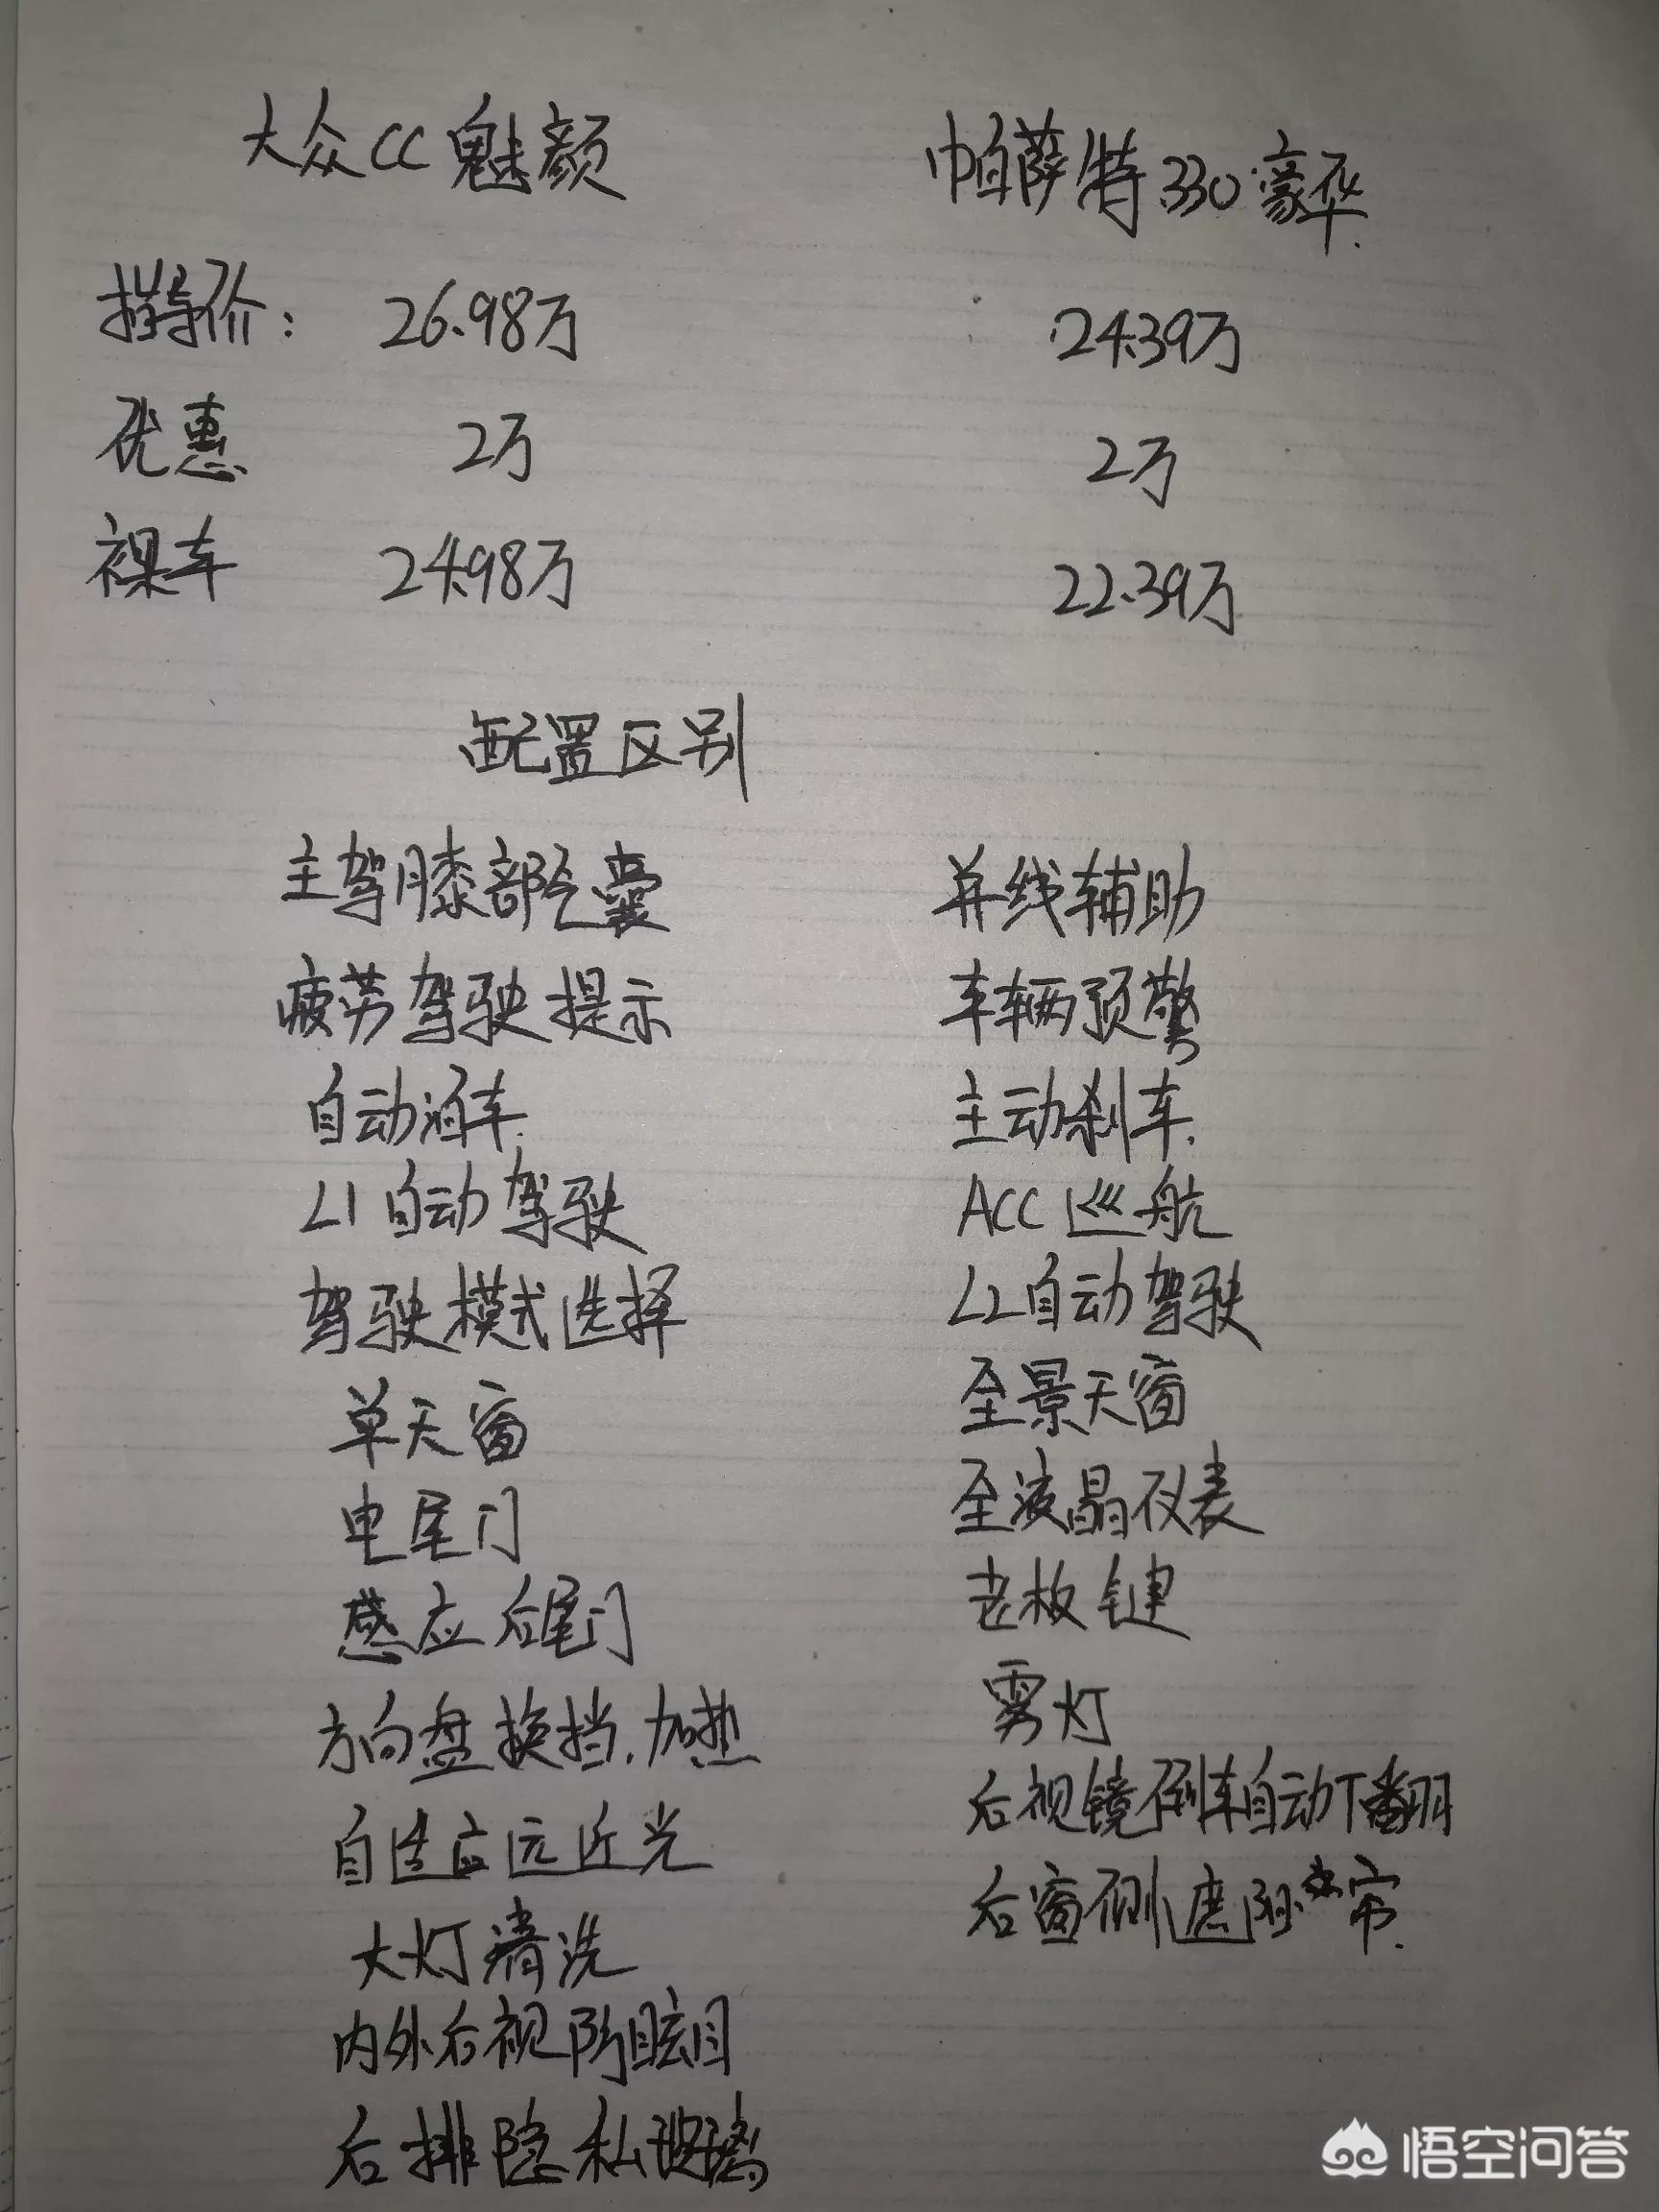 大众CC魅颜 帕萨特330豪华
指导价: 26.98万 24.39万
优惠 2万 2万
裸车 24.98万 22.39万
配置区别
主驾膝部气囊 并线辅助
疲劳驾驶提示 车辆预警
自动泊车 主动刹车
L1自动驾驶 ACC巡航
驾驶模式选择 L2自动驾驶
单天窗 全景天窗
电尾门 全液晶仪表
感应后尾门 老板键
方向盘换挡.加热 雾灯
自适应远近光 后视镜倒车自动下翻
大灯清洗 后窗侧遮阳帘
内外后视防眩目
后排隐私玻璃
悟空问答